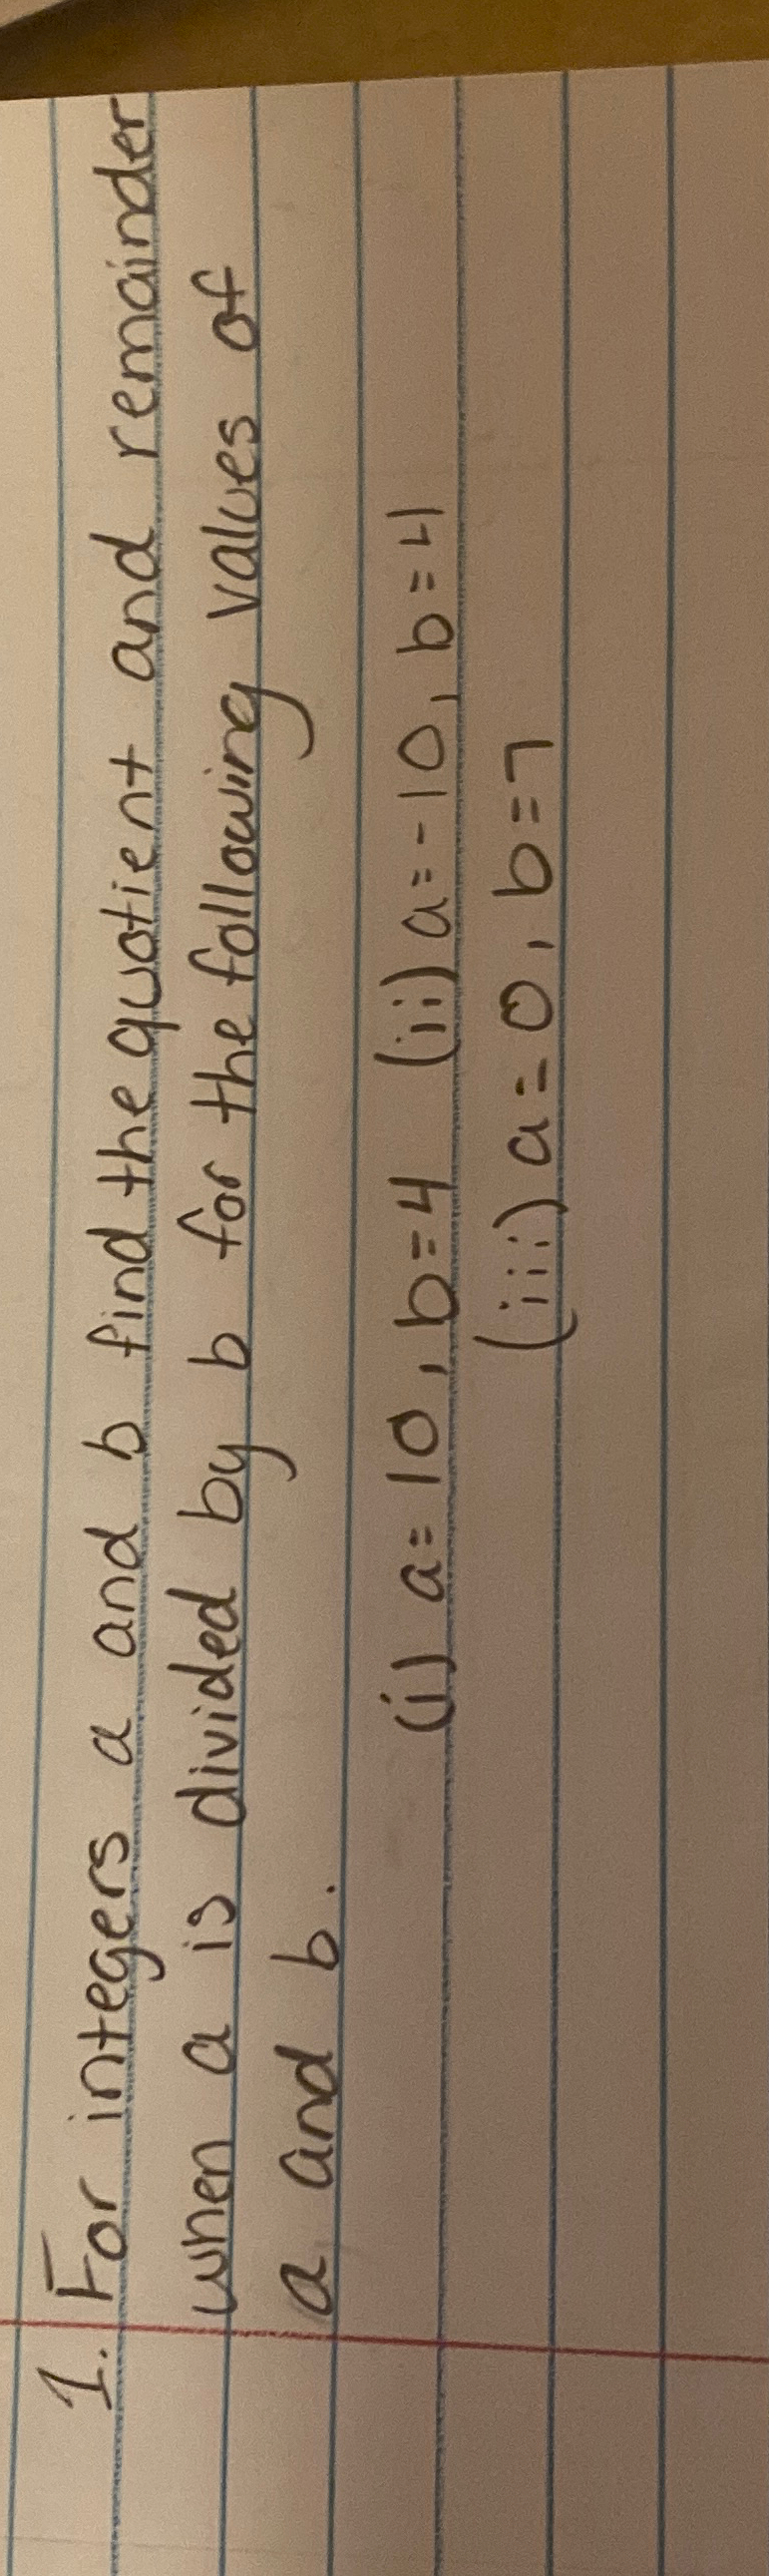 1. For integers a and b find the quotient and remainder
when a is divided by b for the following values of
a and b.
(i) a = 10, b = 4 (ii) a = -10, b = 4
(iii) a = 0, b = 7